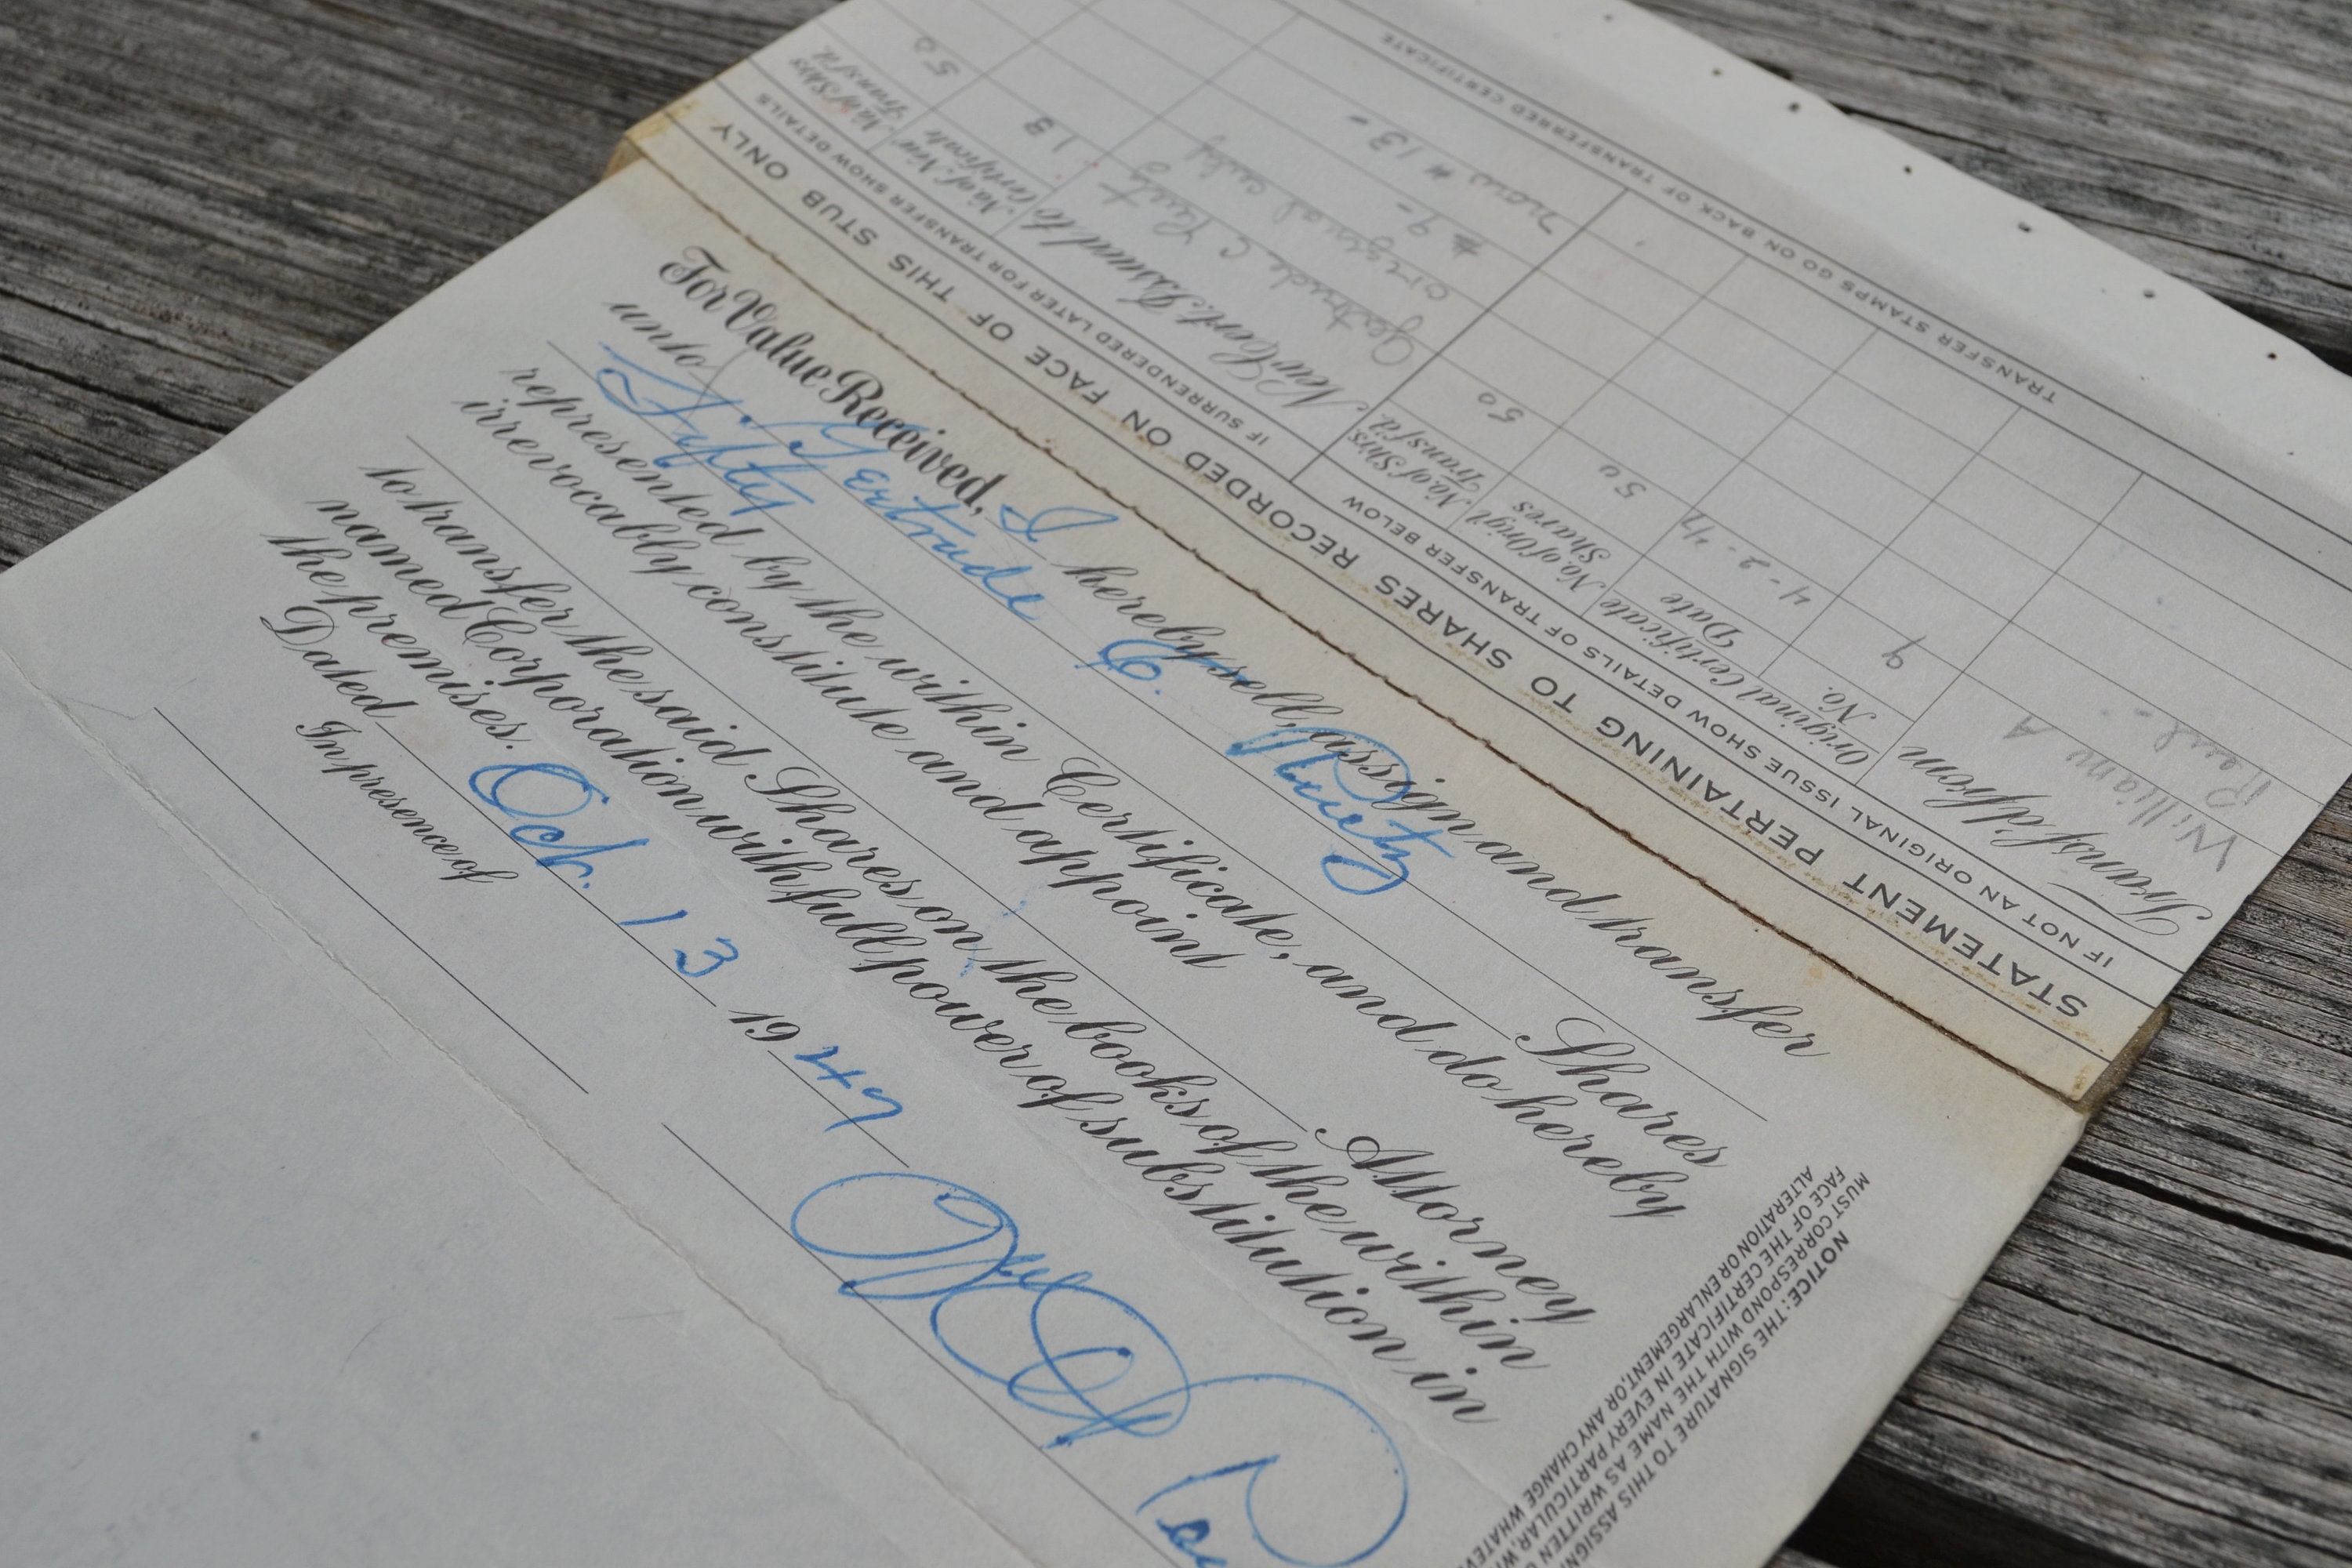 For Value Received, I hereby sell, assign and transfer
unto Gertrude C. Rentz
Fifty Shares
represented by the within Certificate, and do hereby
irrevocably constitute and appoint
Attorney
to transfer the said Shares on the books of the within
named Corporation with full power of substitution in
the premises.
Dated Oct. 13 1947
In presence of
NOTICE: THE SIGNATURE TO THIS ASSIGN
MUST CORRESPOND WITH THE NAME AS WRITTEN
FACE OF THE CERTIFICATE IN EVERY PARTICULAR, WI
ALTERATION OR ENLARGEMENT, OR ANY CHANGE WHATE
STATEMENT PERTAINING TO SHARES RECORDED ON FACE OF THIS STUB ONLY
IF NOT AN ORIGINAL ISSUE SHOW DETAILS OF TRANSFER BELOW
IF SURRENDERED LATER FOR TRANSFER SHOW DETAILS
Transf'd from
Original Certificate
No.
Date
No. of Origl.
Shares
No. of Shrs.
Transf'd.
New Cert. Issued to
No. of New
Certificate
No. of Shrs.
Transf'd.
William A
9
4-2-47
50
50
Gertrude C
13
50
original only
# 9 -
now # 13 -
TRANSFER STAMPS GO ON BACK OF TRANSFERRED CERTIFICATE